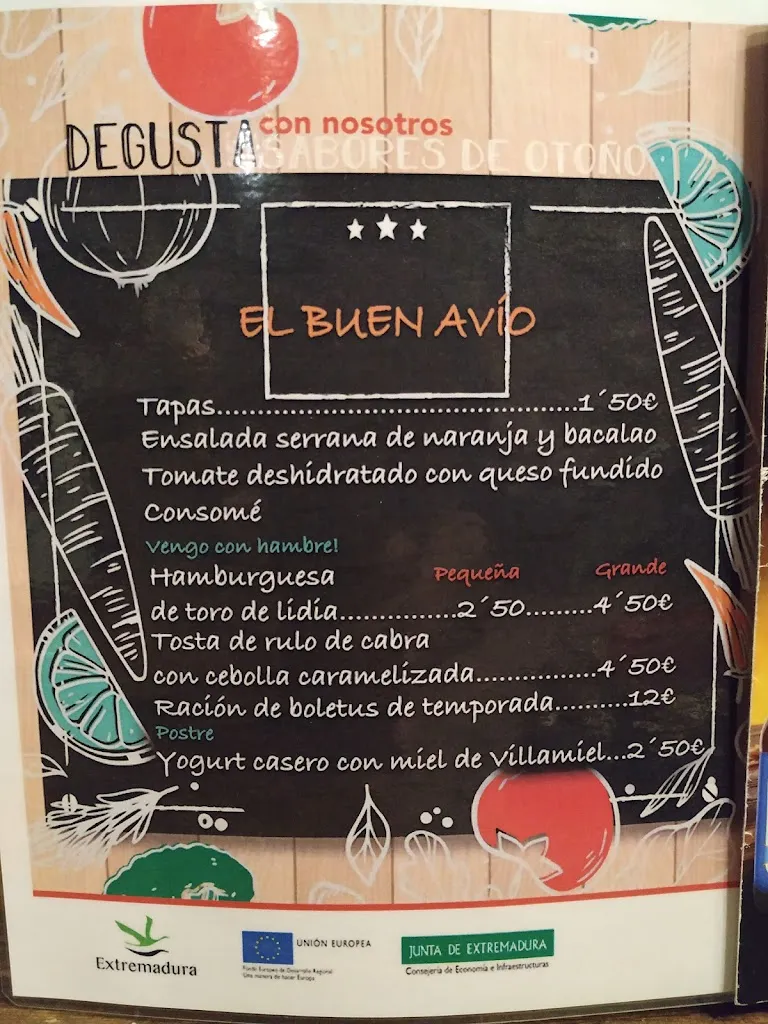 DEGUSTA con nosotros
SABORES DE OTOÑO
EL BUEN AVÍO
Tapas.............................................1´50€
Ensalada serrana de naranja y bacalao
Tomate deshidratado con queso fundido
Consomé
Vengo con hambre!
Hamburguesa Pequeña Grande
de toro de lidia...............2´50.........4´50€
Tosta de rulo de cabra
con cebolla caramelizada...............4´50€
Ración de boletus de temporada.........12€
Postre
Yogurt casero con miel de Villamiel...2´50€
Extremadura
UNIÓN EUROPEA
Fondo Europeo de Desarrollo Regional
Una manera de hacer Europa
JUNTA DE EXTREMADURA
Consejería de Economía e Infraestructuras